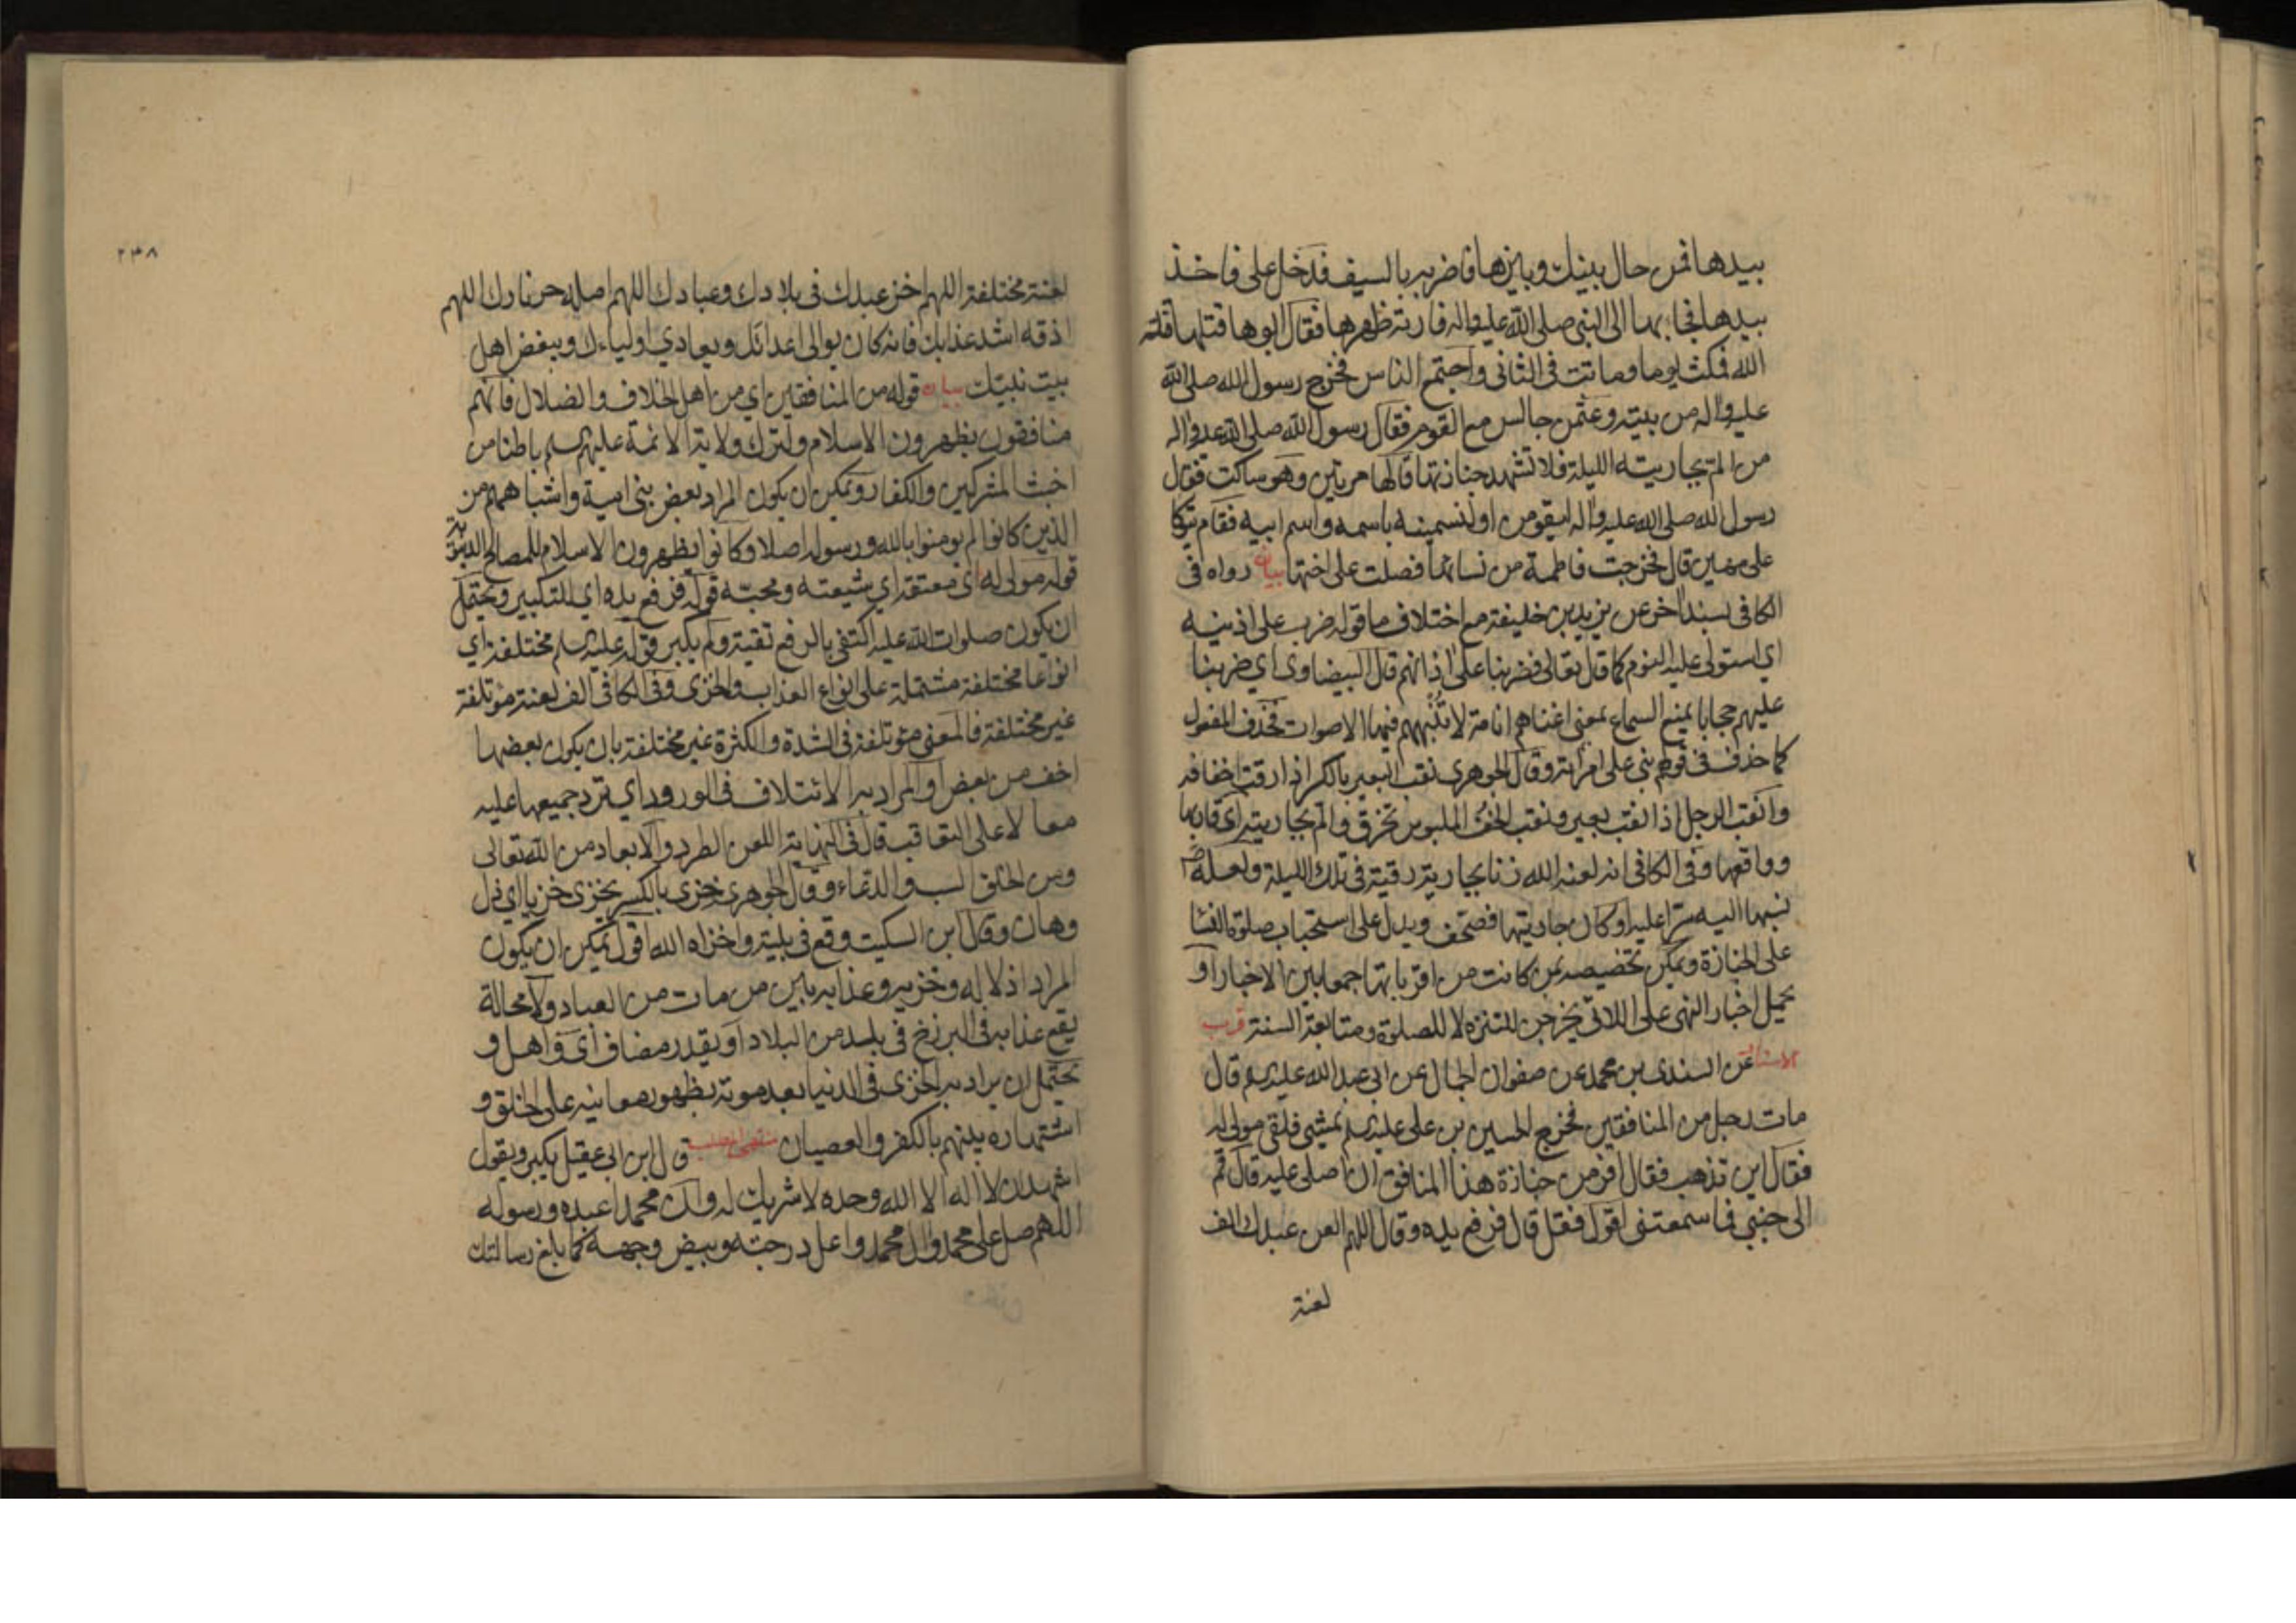 بيدها فمن حال بينك وبينها فاضربه بالسيف فدخل علي فاخذ
بيدها فجاء بها الى النبي صلى الله عليه واله فارته ظهرها فقال ابوها قتلها قتله
الله فمكث يوما وماتت في الثاني واجتمع الناس فخرج رسول الله صلى الله
عليه واله من بيته وعثمن جالس مع القوم فقال رسول الله صلى الله عليه واله
من الم بجاريته الليلة فلا تشهد جنازتها قالها مرتين وهو ساكت فقال
رسول الله صلى الله عليه واله ليقومن او لنسمينه باسمه واسم ابيه فقام يتوكا
على مهين قال فخرجت فاطمة من نسائها فصلت على اختها بيان رواه في
الكافي بسند اخر عن يزيد بن خليفة مع اختلاف ما قوله ضرب على اذنيه
اي استولى عليه النوم كما قال تعالى فضربنا على اذانهم قال البيضاوي اي ضربنا
عليهم حجابا يمنع السماع بمعنى انمناهم انامة لا تنبههم فيها الاصوات فحذف المفعول
كما حذف في قولهم بنى على امراته وقال الجوهري نقب البعير بالكسر اذا رقت اخفافه
وانقب الرجل اذا نقب بعيره ونقب الخف الملبوس تخرق والم بجاريته اي قاربها
وواقعها وفي الكافي انه لعنه الله زنا بجارية رقية في تلك الليلة ولعله ص
نسبها اليه سترا عليه او كان جاريتها فصحف ويدل على استحباب صلوة النساء
على الجنازة ويمكن تخصيصه بمن كانت من اقربائها جمعا بين الاخبار او
بحمل اخبار النهي على اللاتي يخرجن للتنزه لا للصلوة ومتابعة السنة قرب
الاسناد عن السندي بن محمد عن صفوان الجمال عن ابي عبد الله عليه السلم قال
مات رجل من المنافقين فخرج الحسين بن علي عليه السلم يمشي فلقي مولى له
فقال اين تذهب فقال افر من جنازة هذا المنافق ان اصلي عليه قال قم
الى جنبي فما سمعتني اقول فقل قال فرفع يده وقال اللهم العن عبدك الف
لعنة
٢٣٨
لعنة مختلفة اللهم اخز عبدك في بلادك وعبادك اللهم اصله حر نارك اللهم
اذقه اشد عذابك فانه كان يوالي اعدائك ويعادي اولياءك ويبغض اهل
بيت نبيك بيان قوله من المنافقين اي من اهل الخلاف والضلال فانهم
منافقون يظهرون الاسلام ولترك ولاية الائمة عليهم السلم باطنا من
اخبث المشركين والكفار ويمكن ان يكون المراد بعض بني امية واشباههم من
الذين كانوا لم يومنوا بالله ورسوله اصلا وكانوا يظهرون الاسلام للمصالح الدنيوية
قوله مولى له اي معتقه اي شيعته ومحبه قوله فرفع يده اي للتكبير ويحتمل
ان يكون صلوات الله عليه اكتفى بالرفع تقية ولم يكبر قوله عليه السلم مختلفة اي
انواعا مختلفة مشتملة على انواع العذاب والخزي وفي الكافي الف لعنة مؤتلفة
غير مختلفة فالمعنى مؤتلفة في الشدة والكثرة غير مختلفة بان يكون بعضها
اخف من بعض او المراد به الائتلاف في الورود اي ترد جميعها عليه
معا لا على التعاقب قال في النهاية اللعن الطرد والابعاد من الله تعالى
ومن الخلق السب والدعاء وقال الجوهري خزي بالكسر يخزى خزيا اي ذل
وهان وقال ابن السكيت وقع في بلية واخزاه الله اقول يمكن ان يكون
المراد اذلاله وخزيه وعذابه بين من مات من العباد ولا محالة
يقع عذابه في البرزخ في بلد من البلاد او يقدر مضاف اي في اهل و
يحتمل ان يراد به الخزي في الدنيا بعد موته بظهور معايبه على الخلق و
اشتهاره بينهم بالكفر والعصيان منتهى المطلب قال ابن ابي عقيل يكبر ويقول
اشهد ان لا اله الا الله وحده لا شريك له وان محمدا عبده ورسوله
اللهم صل على محمد وال محمد واعل درجته وبيض وجهه كما بلغ رسالتك